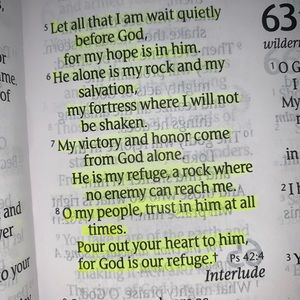 5 Let all that I am wait quietly
before God,
for my hope is in him.
6 He alone is my rock and my
salvation,
my fortress where I will not
be shaken.
7 My victory and honor come
from God alone.
He is my refuge, a rock where
no enemy can reach me.
8 O my people, trust in him at all
times.
Pour out your heart to him,
for God is our refuge.† Ps 42:4
Interlude
63
wilder
1 O G
I
M
in
3 Y
of
and
to your